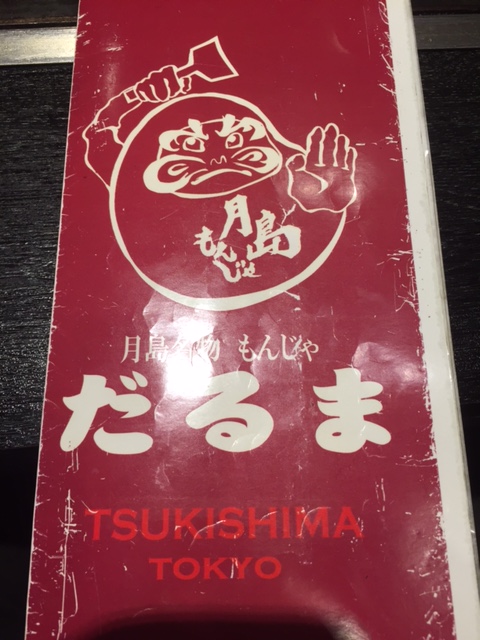 月島
もんじゃ
月島名物 もんじゃ
だるま
TSUKISHIMA
TOKYO